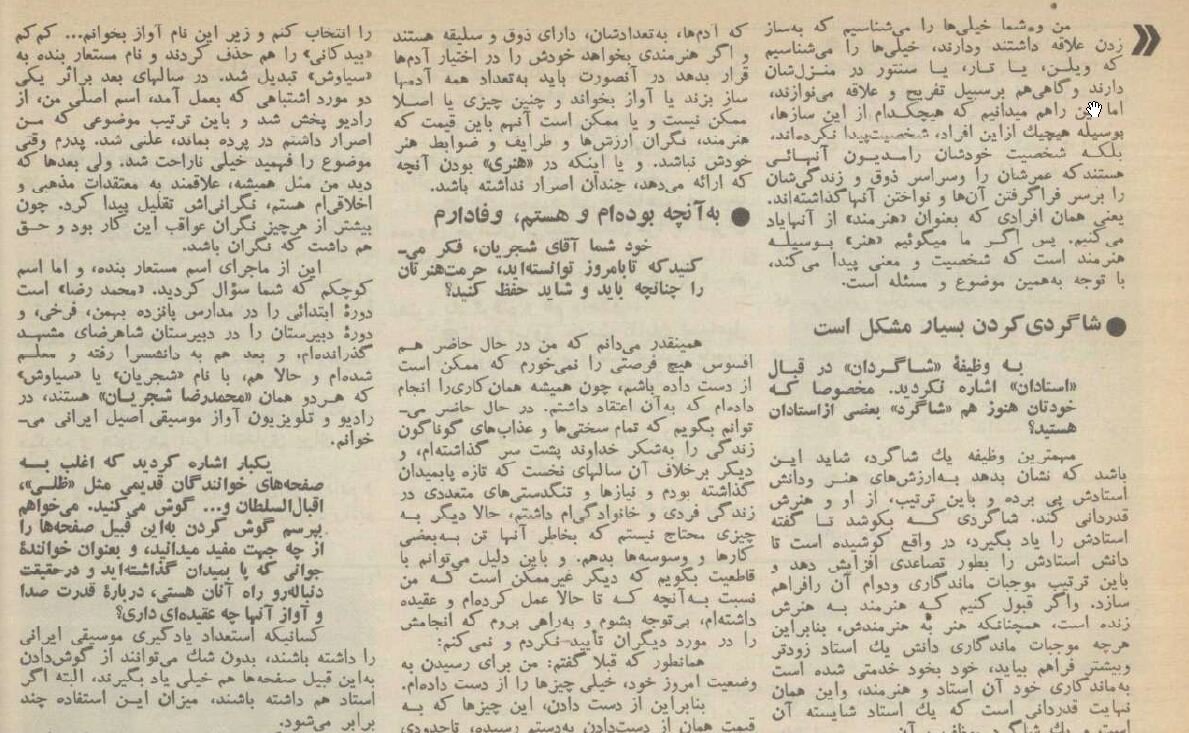 من وشما خیلی‌ها را می‌شناسیم که به‌ساز
زدن علاقه داشتند ودارند، خیلی‌ها را می‌شناسیم
که ویلن، یـا تـار، یـا سنتور در منـزل‌شان
دارند وگاهی‌هم برسبیل تفریح و علاقه می‌نوازند،
اما این راهم میدانیم که هیچکدام از این سازها،
بوسیله هیچیك ازاین افراد، شخصیت‌پیدا نکرده‌اند،
بلکـه شخصیت خودشان رامـدیـون آنهـائـی
هستندکه عمرشان را وسراسر ذوق و زندگی‌شان
را برسر فراگرفتن آن‌ها و نواختن آنهاکذاشته‌اند.
یعنی همان افرادی که بعنوان «هنرمند» از آنهایاد
می‌کنیم. پس اگـر ما میگوئیم «هنر» بـوسیلـه
هنرمند است که شخصیت و معنی پیدا می‌کند،
با توجه به‌همین موضوع و مسئله است.
● شاگردی‌کردن بسیار مشکل است
بـه وظیفهٔ «شـاگـردان» در قبـال
«استادان» اشاره نکردید. مخصوصا کـه
خودتان هنوز هم «شاگرد» بعضی ازاستادان
هستید؟
مهمترین وظیفه یك شاگرد، شاید ایـن
باشد که نشان بدهد بـه‌ارزش‌های هنـر ودانش
استادش پی برده و باین ترتیب، از او و هنرش
قدردانی کند. شاگردی کـه بکوشد تـا گفته
استادش را یاد بگیرد، در واقع کوشیده است تا
دانش استادش را بطور تصاعدی افزایش دهد و
باین ترتیب موجبات ماندگاری ودوام آن رافراهم
سازد. واگر قبول کنیم کـه هنرمند بـه هنرش
زنده است، همچنانکه هنر به هنرمندش، بنابراین
هرچه موجبات ماندگاری دانش یك استاد زودتر
وبیشتر فراهم بیاید، خود بخود خدمتی شده است
به‌ماندگاری خود آن استاد و هنرمند، واین همان
نهایت قدردانی است که یك استاد شایسته آن
که آدم‌ها، به‌تعدادشان، دارای ذوق و سلیقه هستند
و اگر هنرمندی بخواهد خودش را در اختیار آدم‌ها
قرار بدهد در آنصورت باید به‌تعداد همه آدمها
ساز بزند یا آواز بخواند و چنین چیزی یا اصـلا
ممکن نیست و یا ممکن است آنهم باین قیمت که
هنرمند، نگران ارزش‌ها و ظرایف و ضوابط هنر
خودش نباشد. و یا اینکه در «هنری» بودن آنچه
که ارائه می‌دهد، چندان اصرار نداشته باشد.
● به‌آنچه بوده‌ام و هستم، وفادارم
خود شما آقای شجریان، فکر می‌ـ
کنیدکه تابامروز توانسته‌اید، حرمت‌هنرتان
را چنانچه باید و شاید حفظ کنید؟
همینقدر می‌دانم که من در حال حاضر هـم
افسوس هیچ فرصتی را نمی‌خورم که ممکن است
از دست داده باشم، چون همیشه همان‌کاری‌را انجام
داده‌ام که به‌آن اعتقاد داشتم. در حال حاضر می‌ـ
توانم بگویم که تمام سختی‌ها و عذاب‌های گوناگون
زندگی را به‌شکر خداوند پشت سر گذاشته‌ام، و
دیگر برخلاف آن سالهای نخست که تازه پابمیدان
گذاشته بودم و نیازها و تنگدستی‌های متعددی در
زندگی فردی و خانوادگی‌ام داشتم، حالا دیگر بـه
چیزی محتاج نیستم که بخاطر آنها تن بـه‌بعضی
کارها و وسوسه‌ها بدهم. و باین دلیل می‌توانم با
قاطعیت بگویم که دیگر غیرممکن است کـه من
نسبت بـه‌آنچه کـه تا حالا عمل کرده‌ام و عقیده
داشته‌ام، بی‌توجه بشوم و به‌راهی بروم که انجامش
را در مورد دیگران تأیید نکردم و نمی‌کنم:
همانطور که قبلا گفتم: من برای رسیدن به
وضعیت امروز خود، خیلی چیزها را از دست داده‌ام.
بنابراین از دست دادن، این چیزها که بـه
قیمت همان از دست‌دادن به‌دستم رسیده، تاحدودی
را انتخاب کنم و زیر این نام آواز بخوانم... کم‌کم
«بیدکانی» را هم حذف کردند و نام مستعار بنده به
«سیاوش» تبدیل شد. در سالهای بعد براثر یکی
دو مورد اشتباهی که بعمل آمد، اسم اصلی من، از
رادیو پخش شد و باین ترتیب موضوعی که مـن
اصرار داشتم در پرده بماند، علنی شد. پدرم وقتی
موضوع را فهمید خیلی ناراحت شد. ولی بعدها که
دید من مثل همیشه، علاقمند به معتقدات مذهبی و
اخلاقی‌ام هستم، نگرانی‌اش تقلیل پیدا کرد. چون
بیشتر از هرچیز نگران عواقب این کار بود و حـق
هم داشت که نگران باشد.
این از ماجرای اسم مستعار بنده، و اما اسم
کوچکم که شما سؤال کردید. «محمد رضا» است
دورهٔ ابتدائی را در مدارس پانزده بهمن، فرخی، و
دورهٔ دبیرستان را در دبیرستان شاهرضای مشهـد
گذرانده‌ام، و بعد هم به دانشسرا رفته و معلـم
شده‌ام و حالا هم، با نام «شجریان» یا «سیاوش»
که هـردو همان «محمدرضا شجریـان» هستند، در
رادیو و تلویزیون آواز موسیقی اصیل ایرانی می‌ـ
خوانم.
یکبار اشاره کردید که اغلب بـه
صفحه‌های خوانندگان قدیمی مثل «ظلـی»،
اقبال‌السلطان و... گوش می‌کنید. می‌خواهم
بپرسم گوش کردن به‌این قبیل صفحه‌ها را
از چه جهت مفید میدانید، و بعنوان خوانندهٔ
جوانی که پا بمیدان گذاشته‌اید و درحقیقت
دنباله‌رو راه آنان هستی، دربارهٔ قدرت صدا
و آواز آنها چه عقیده‌ای داری؟
کسانیکه استعداد یادگیری موسیقی ایرانی
را داشته باشند، بدون شك می‌توانند از گوش‌دادن
به‌این قبیل صفحه‌ها هم خیلی یاد بگیرند، البته اگر
استاد هم داشته باشند، میزان ایـن استفاده چند
برابر می‌شود.